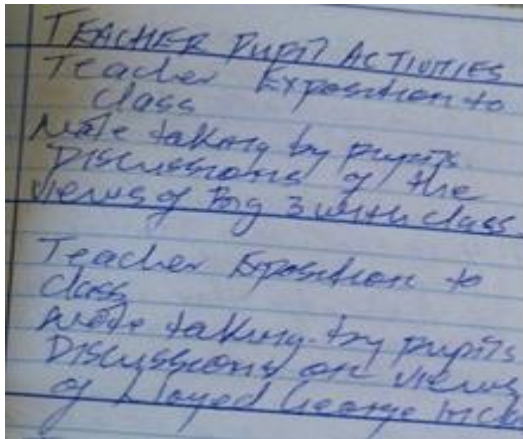 TEACHER PUPIL ACTIVITIES
Teacher Exposition to
class
Note taking by pupils
Discussions of the
views of Big 3 with class
Teacher Exposition to
class
Note taking by pupils
Discussions on views
of Loyed George in